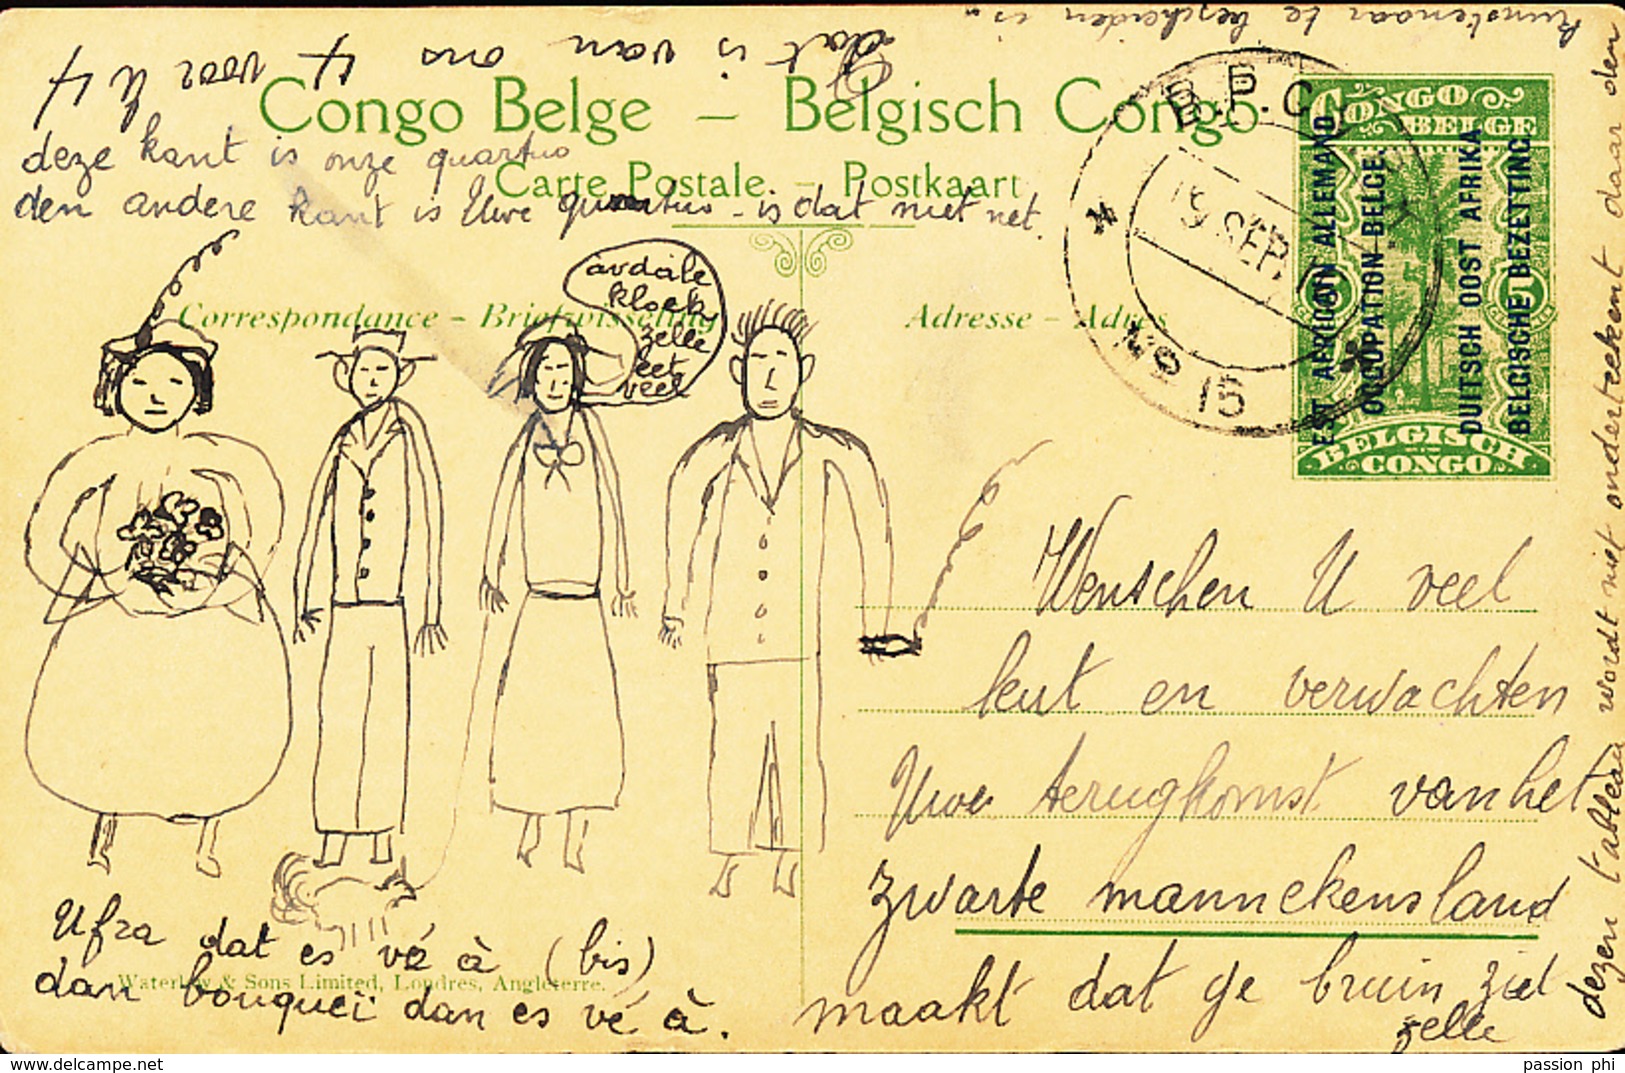 Dat is van ons 4 voor u 4
Congo Belge – Belgisch Congo
deze kant is onze quartuo
Carte Postale. – Postkaart
den andere kant is Uwe quartuo - is dat niet net.
Correspondance – Briefwisseling
Adresse – Adres
avdale
kloek
zelle
eet
veel
B.P.C.V.
19 SEPT
No 15
CONGO
BELGE
EST AFRICAIN ALLEMAND
OCCUPATION BELGE.
DUITSCH OOST AFRIKA
BELGISCHE BEZETTING
BELGISCH
CONGO
Wenschen U veel
leut en verwachten
Uwe terugkomst van het
zwarte mannekensland
maakt dat ge bruin ziet
zelle
Ufra dat es vé à (bis)
dan bouqueï dan es vé à.
Waterlow & Sons Limited, Londres, Angleterre.
dezen tableau wordt niet onderteekent daar den
kunstenaar te bescheiden is"
passion phi